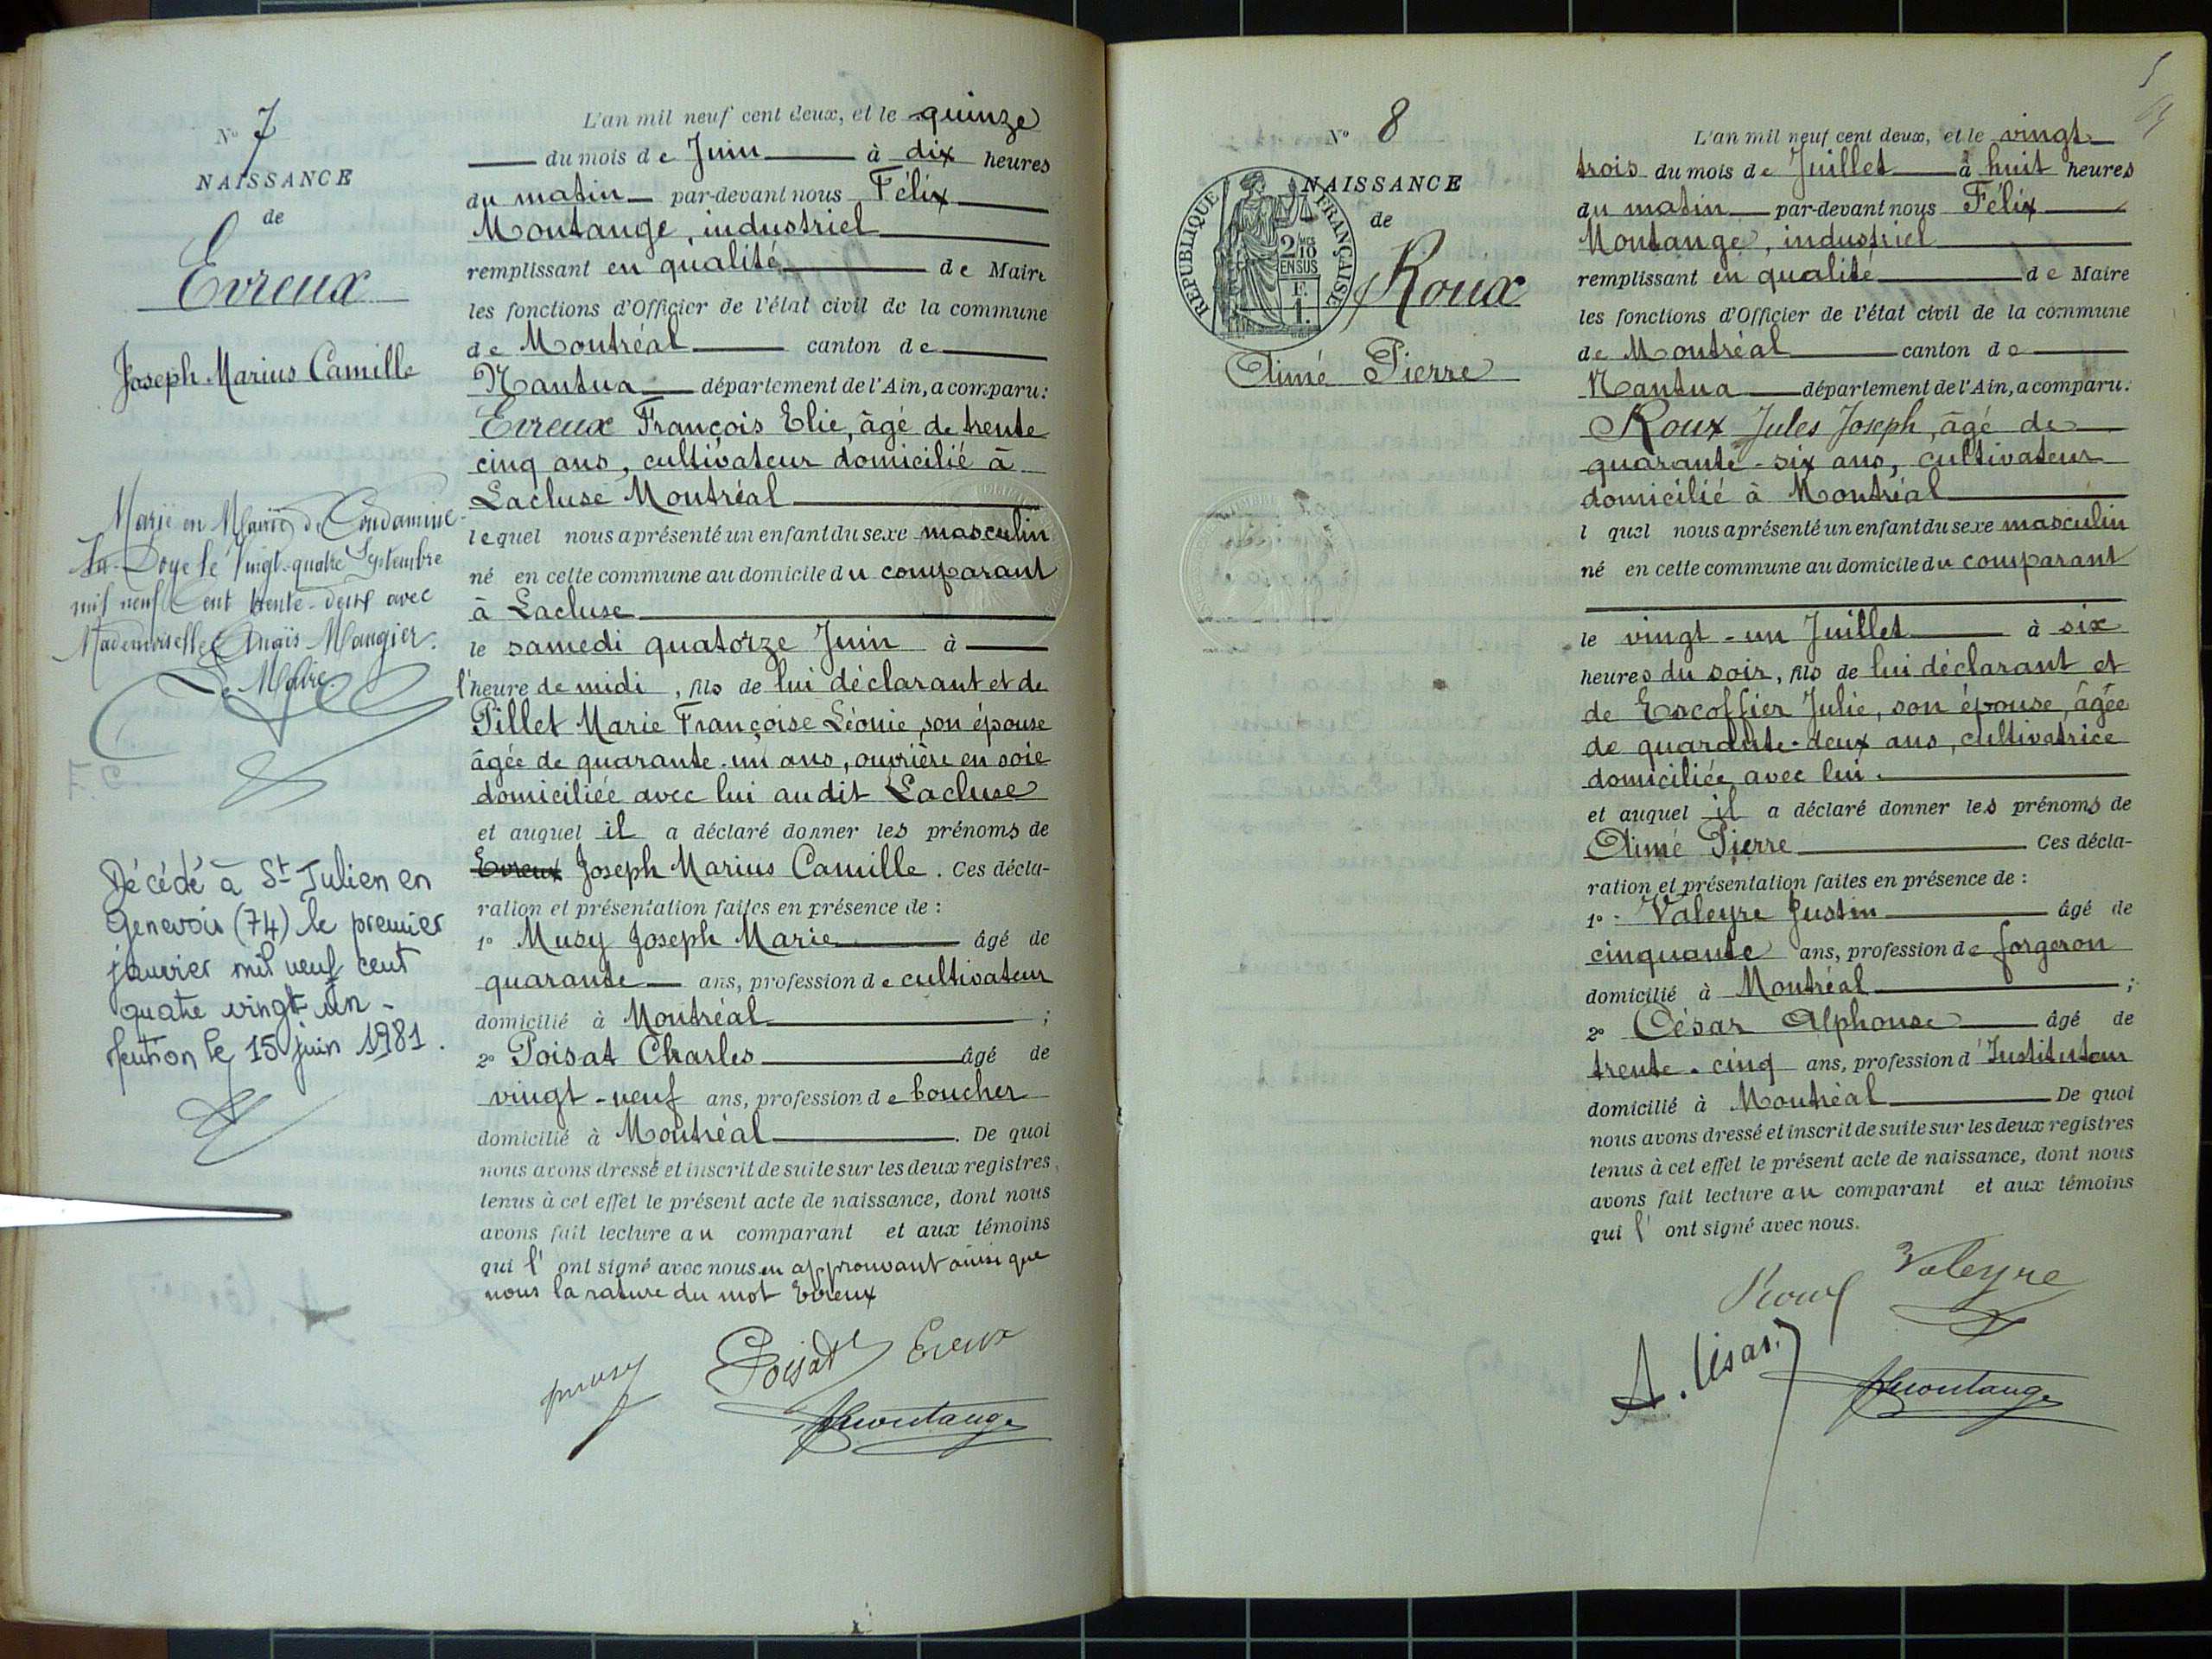 N° 7
NAISSANCE
de
Evreux
Joseph Marius Camille
Marié en Mairie de Condamine-
La-Doye le Vingt-quatre Septembre
mil neuf Cent trente-deux avec
Mademoiselle Anaïs Maugier.
Le Maire.
Décédé à St Julien en
Genevois (74) le premier
janvier mil neuf cent
quatre vingt un -
Mention le 15 juin 1981.
L'an mil neuf cent deux, et le quinze
du mois de Juin à dix heures
du matin par-devant nous Félix
Montange, industriel
remplissant en qualité de Maire
les fonctions d'Officier de l'état civil de la commune
de Montréal canton de
Nantua département de l'Ain, a comparu:
Evreux François Elie, âgé de trente
cinq ans, cultivateur domicilié à
Lacluse Montréal
lequel nous a présenté un enfant du sexe masculin
né en cette commune au domicile du comparant
à Lacluse
le samedi quatorze Juin à
l'heure de midi, fils de lui déclarant et de
Pillet Marie Françoise Léonie son épouse
âgée de quarante-un ans, ouvrière en soie
domiciliée avec lui audit Lacluse
et auquel il a déclaré donner les prénoms de
Evreux Joseph Marius Camille. Ces décla-
ration et présentation faites en présence de :
1° Musy Joseph Marie âgé de
quarante ans, profession de cultivateur
domicilié à Montréal ;
2° Poisat Charles âgé de
vingt-neuf ans, profession de boucher
domicilié à Montréal. De quoi
nous avons dressé et inscrit de suite sur les deux registres
tenus à cet effet le présent acte de naissance, dont nous
avons fait lecture au comparant et aux témoins
qui l'ont signé avec nous en approuvant ainsi que
nous la rature du mot Evreux
Musy Poisat Evreux
Montange
5
N° 8
NAISSANCE
de
Roux
Aimé Pierre
REPUBLIQUE FRANÇAISE
2/10
EN SUS
F.
1.
L'an mil neuf cent deux, et le vingt-
trois du mois de Juillet à huit heures
du matin par-devant nous Félix
Montange, industriel
remplissant en qualité de Maire
les fonctions d'Officier de l'état civil de la commune
de Montréal canton de
Nantua département de l'Ain, a comparu:
Roux Jules Joseph, âgé de
quarante-six ans, cultivateur
domicilié à Montréal
l quel nous a présenté un enfant du sexe masculin
né en cette commune au domicile du comparant
le vingt-un Juillet à six
heures du soir, fils de lui déclarant et
de Escoffier Julie, son épouse, âgée
de quarante-deux ans, cultivatrice
domiciliée avec lui.
et auquel il a déclaré donner les prénoms de
Aimé Pierre Ces décla-
ration et présentation faites en présence de :
1° - Valeyre Justin âgé de
cinquante ans, profession de forgeron
domicilié à Montréal ;
2° César Alphonse âgé de
trente-cinq ans, profession d'Instituteur
domicilié à Montréal De quoi
nous avons dressé et inscrit de suite sur les deux registres
tenus à cet effet le présent acte de naissance, dont nous
avons fait lecture au comparant et aux témoins
qui l'ont signé avec nous.
Roux Valeyre
A. César.
Montange